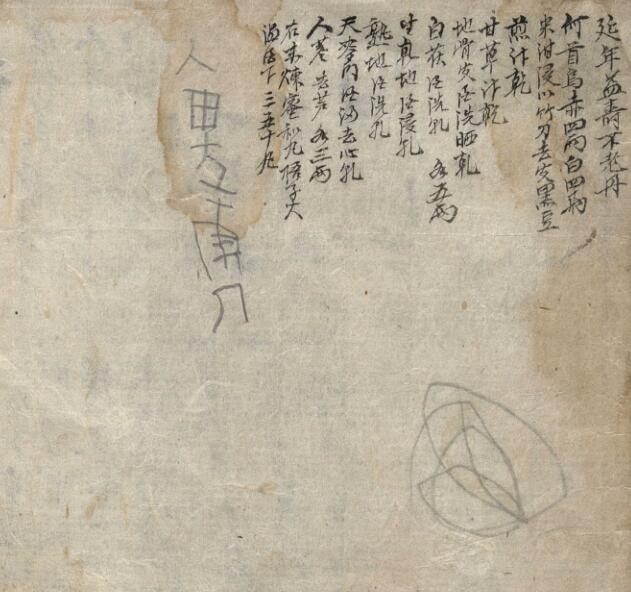 延年益壽不老丹
何首烏赤四兩白四兩
米泔浸以竹刀去皮黑豆
煎汁乾
甘草汁乾
地骨皮酒洗晒乾
白茯酒洗乳 各五兩
生乾地酒浸乳
熟地酒洗乳
天麥門酒浸去心乳
人蔘去芦各三兩
右末煉蜜和丸梧子大
温酒下三五十丸